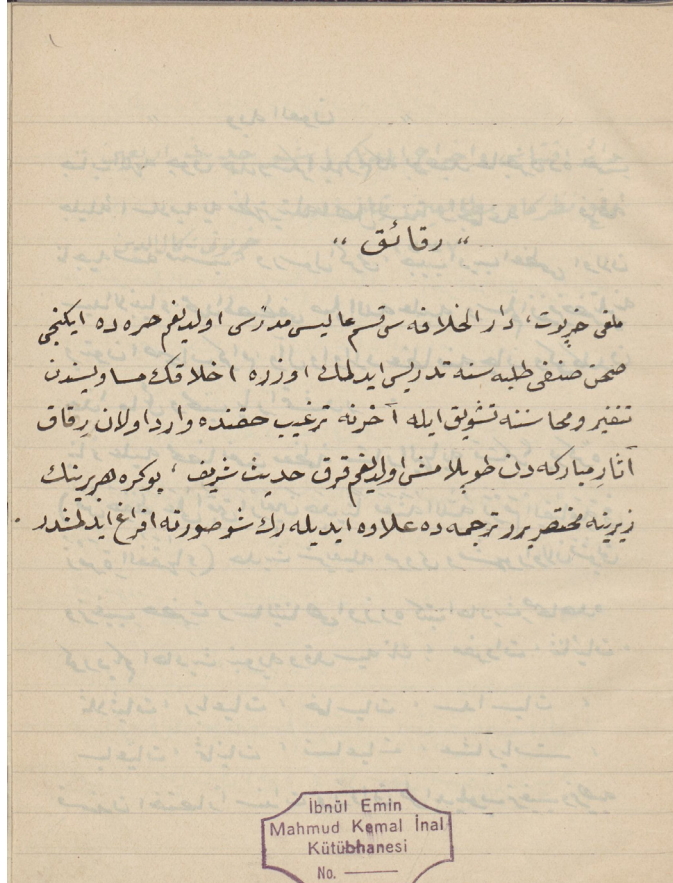 „ رقائق „
ملغى خرپوت، دار الخلافه سى قسم عاليسى مدرسى اولديغم صره ده ايكنجى
صحن صنفى طلبه سنه تدريس ايدلمك اوزره اخلاقك مساويسندن
تنفير ومحاسننه تشويق ايله آخرته ترغيب حقنده وارد اولان رقاق
آثار مباركه دن طوپلامش اولديغم قرق حديث شريف، بو كره هر برينك
زيرينه مختصر برر ترجمه ده علاوه ايديله رك شو صورته افراغ ايدلمشدر.
İbnül Emin
Mahmud Kemal İnal
Kütübhanesi
No.